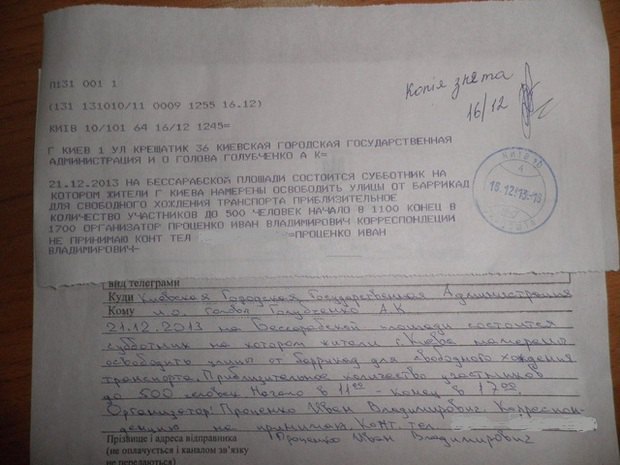 П131 001 1
(131 131010/11 0009 1255 16.12)
КИЇВ 10/101 64 16/12 1245=
Г КИЕВ 1 УЛ КРЕЩАТИК 36 КИЕВСКАЯ ГОРОДСКАЯ ГОСУДАРСТВЕННАЯ
АДМИНИСТРАЦИЯ И О ГОЛОВА ГОЛУБЧЕНКО А К=
21.12.2013 НА БЕССАРАБСКОЙ ПЛОЩАДИ СОСТОИТСЯ СУББОТНИК НА
КОТОРОМ ЖИТЕЛИ Г КИЕВА НАМЕРЕНЫ ОСВОБОДИТЬ УЛИЦЫ ОТ БАРРИКАД
ДЛЯ СВОБОДНОГО ХОЖДЕНИЯ ТРАНСПОРТА ПРИБЛИЗИТЕЛЬНОЕ
КОЛИЧЕСТВО УЧАСТНИКОВ ДО 500 ЧЕЛОВЕК НАЧАЛО В 1100 КОНЕЦ В
1700 ОРГАНИЗАТОР ПРОЦЕНКО ИВАН ВЛАДИМИРОВИЧ КОРРЕСПОНДЕЦИИ
НЕ ПРИНИМАЮ КОНТ ТЕЛ =ПРОЦЕНКО ИВАН
ВЛАДИМИРОВИЧ-
Копія знята
16/12
КИЇВ
вид телеграми
Куди Киевская Городская Государственная Администрация
Кому и.о. Голова Голубченко А.К.
21.12.2013 на Бессарабской площади состоится
субботник на котором жители г. Киева намерены
освободить улицы от баррикад для свободного хождения
транспорта. Приблизительное количество участников
до 500 человек. Начало в 11⁰⁰ - конец в 17⁰⁰.
Организатор: Проценко Иван Владимирович. Корреспон-
денцию не принимаю. Конт. тел.
Прізвище і адреса відправника Проценко Иван Владимирович
(не оплачується і каналом зв'язку
не передаються)